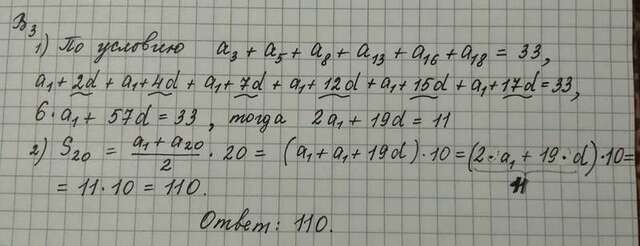 В3
1) По условию a₃ + a₅ + a₈ + a₁₃ + a₁₆ + a₁₈ = 33,
a₁ + 2d + a₁ + 4d + a₁ + 7d + a₁ + 12d + a₁ + 15d + a₁ + 17d = 33,
6·a₁ + 57d = 33, тогда 2a₁ + 19d = 11
2) S₂₀ = (a₁ + a₂₀)/2 · 20 = (a₁ + a₁ + 19d)·10 = (2·a₁ + 19·d)·10 =
11
= 11·10 = 110.
Ответ: 110.